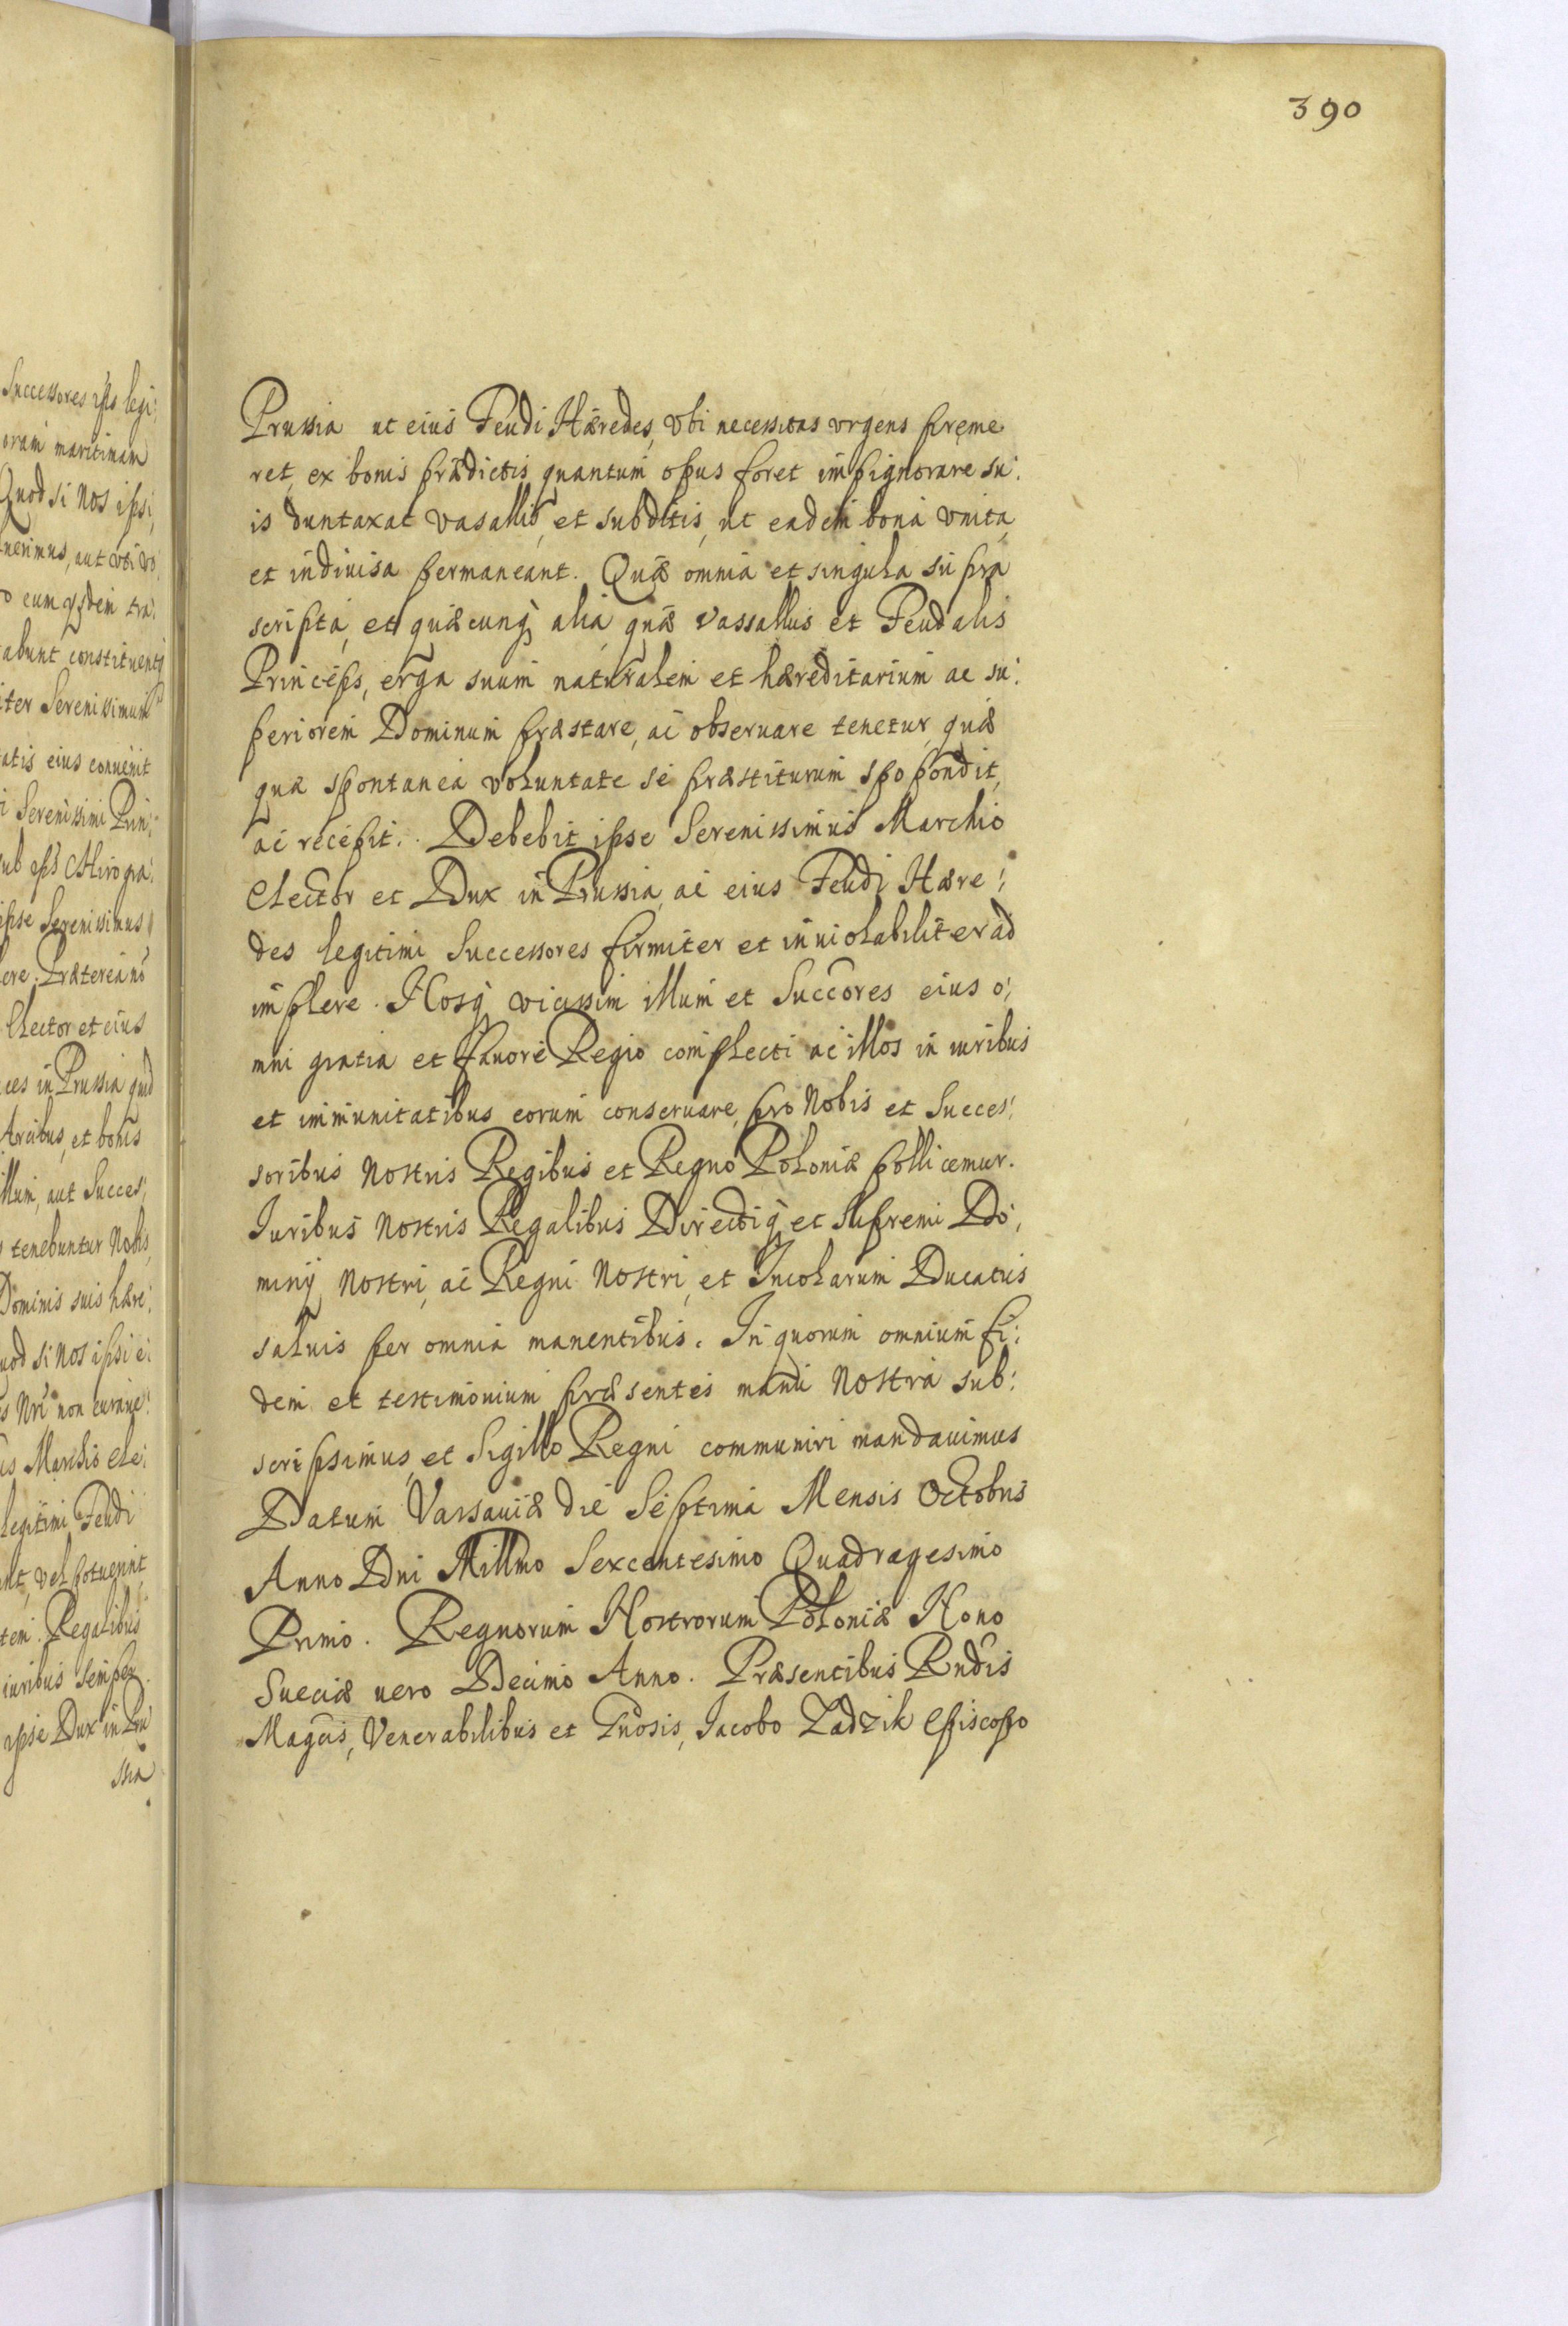 390
Successores ipĩs legi:
oram maritimam
Quod si Nos ipsi,
nerimus, aut vbi vo,
abunt constituenti
iter Serenissimum
atis eius conuenit
i Serenissimi Prin:
ipse Serenissimus
ere. Præterea
Elector et eius
ces in Prussia
Arcibus, et bonis
illum, aut Succes:
tenebuntur Nobis,
Dominis suis hære:
uod si Nos ipsi e:
s Nri non curaue:
us Marchio Ele:
legitimi Feudi
nt, vel potuerint,
tem. Regalibus
iuribus semper
ipse Dux in Pru
ssia
Prussia ut eius Feudi Hæredes, vbi necessitas vrgens preme
ret, ex bonis prædictis quantum opus foret impignorare su:
is duntaxat vasallis, et subditis, ut eadem bona vnita,
et indiuisa permaneant. Quæ omnia et singula supra
scripta, et quæcunq; alia quæ vassallus et Feudalis
Princeps, erga suum naturalem et hæreditarium ac su:
periorem Dominum præstare, ac obseruare tenetur, quæ
quæ spontanea voluntate se præstiturum spopondit,
ac recepit. Debebit ipse Serenissimus Marchio
Elector et Dux in Prussia, ac eius Feudi Hære:
des legitimi Successores firmiter et inuiolabiliter ad
implere. Nosq; vicissim illum et Succores eius o:
mni gratia et fauore Regio complecti ac illos in iuribus
et immunitatibus eorum conseruare, pro Nobis et Succes:
soribus Nostris Regibus et Regno Poloniæ pollicemur.
Iuribus Nostris Regalibus Directiq; et Supremi Do:
minij Nostri, ac Regni Nostri, et Incolarum Ducatus
saluis per omnia manentibus. In quorum omnium fi:
dem et testimonium præsentes manu Nostra sub:
scripsimus, et Sigillo Regni communiri mandauimus
Datum Varsauiæ die Septima Mensis Octobris
Anno Dni Millmo Sexcentesimo Quadragesimo
Primo. Regnorum Nostrorum Poloniæ Nono
Sueciæ uero Decimo Anno. Præsentibus Rndis
Magcis, Venerabilibus et Gnosis, Iacobo Zadzik Episcopo